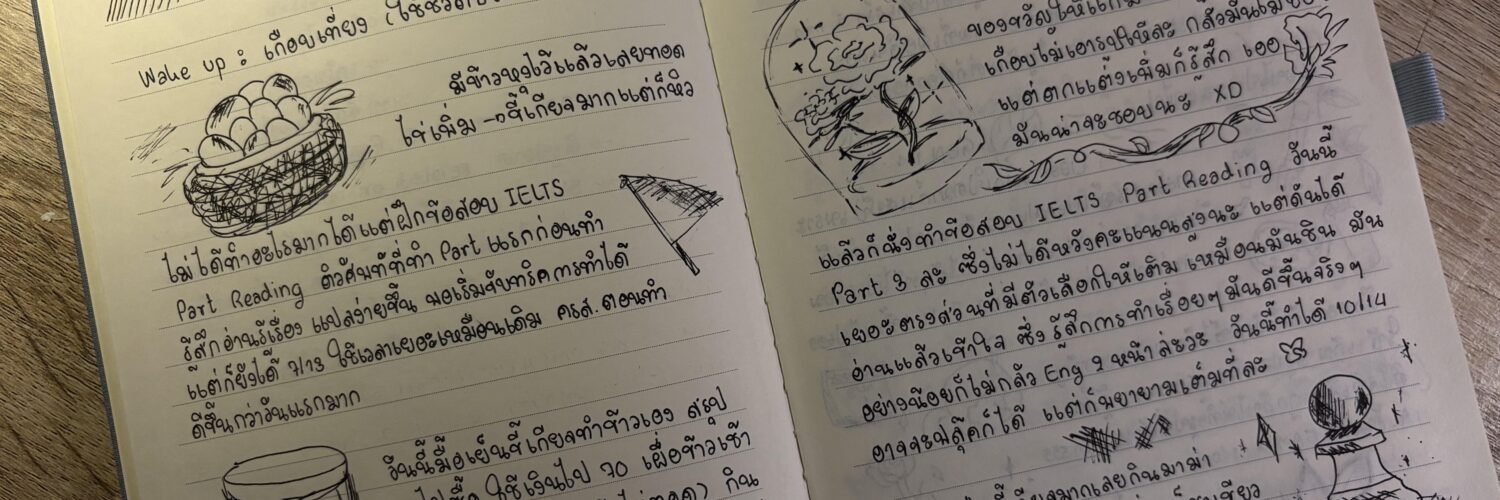 Wake up : เกือบเที่ยง (ใช้ชีวิต
มีข้าวหุงไว้แล้วเลยทอด
ไข่เพิ่ม → ขี้เกียจมากแต่ก็หิว
ไม่ได้ทำอะไรมากได้แต่ฝึกข้อสอบ IELTS
Part Reading ติวศัพท์ที่ทำ Part แรกก่อนทำ
รู้สึกอ่านรู้เรื่อง แปลง่ายขึ้น พอเริ่มจับทริคการทำได้
แต่ก็ยังได้ 7/13 ใช้เวลาเยอะเหมือนเดิม ครส. ตอนทำ
ดีขึ้นกว่าวันแรกมาก
วันนี้มื้อเย็นขี้เกียจทำข้าวเอง สรุป
ใช้เงินไป 70 เผื่อข้าวเช้า
กิน
ของขวัญให้
เกือบไม่เอารูปให้ละ กลัวมัน
แต่ตกแต่งเพิ่มก็รู้สึก เออ
มันน่าจะชอบนะ XD
แล้วก็นั่งทำข้อสอบ IELTS Part Reading วันนี้
Part 3 ละ ซึ่งไม่ได้หวังคะแนนสูงนะ แต่ดันได้
เยอะตรงส่วนที่มีตัวเลือกให้เติม เหมือนมันชิน มัน
อ่านแล้วเข้าใจ ซึ่งรู้สึกการทำเรื่อยๆ มันดีขึ้นจริงๆ
อย่างน้อยก็ไม่กลัว Eng 2 หน้าล่ะวะ วันนี้ทำได้ 10/14
อาจจะฟลุ๊คก็ได้ แต่ก็พยายามเต็มที่ละ
มากเลยกินมาม่า